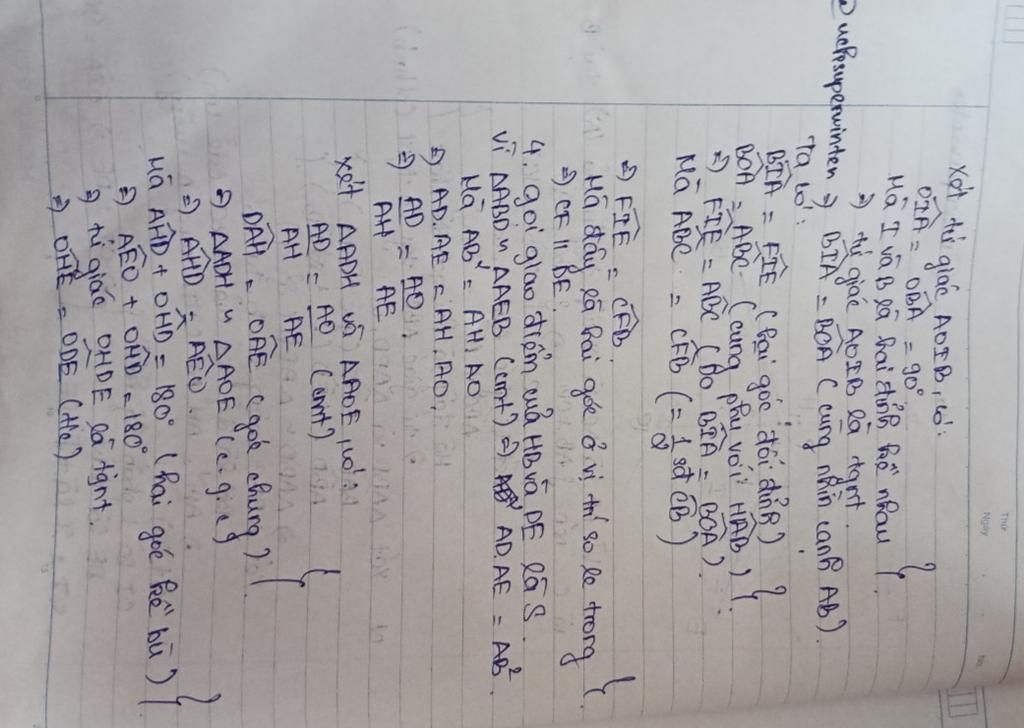 Thứ
Ngày
No
Xét tứ giác AOIB, có:
$\widehat{OIA}$ = $\widehat{OBA}$ = 90°
Mà I và B là hai đỉnh kề nhau
⇒ tứ giác AOIB là tgnt.
⇒ $\widehat{BIA}$ = $\widehat{BOA}$ (cùng nhìn cạnh AB).
Ta có:
$\widehat{BIA}$ = $\widehat{FIE}$ (hai góc đối đỉnh)
$\widehat{BOA}$ = $\widehat{ABC}$ (cùng phụ với $\widehat{HAB}$)
⇒ $\widehat{FIE}$ = $\widehat{ABC}$ (do $\widehat{BIA}$ = $\widehat{BOA}$).
Mà $\widehat{ABC}$ = $\widehat{CFB}$ (= 1/2 sđ CB)
⇒ $\widehat{FIE}$ = $\widehat{CFB}$.
Mà đây là hai góc ở vị trí so le trong
⇒ CF || BE.
4. Gọi giao điểm của HB và DE là S.
Vì ΔABD ~ ΔAEB (cmt) ⇒ AD.AE = AB²
Mà AB² = AH.AO
⇒ AD.AE = AH.AO.
⇒ AD/AH = AO/AE
Xét ΔADH và ΔAOE, có:
AD/AH = AO/AE (cmt)
$\widehat{DAH}$ = $\widehat{OAE}$ (góc chung)
⇒ ΔADH ~ ΔAOE (c.g.c)
⇒ $\widehat{AHD}$ = $\widehat{AEO}$.
Mà $\widehat{AHD}$ + $\widehat{OHD}$ = 180° (hai góc kề bù)
⇒ $\widehat{AEO}$ + $\widehat{OHD}$ = 180°
⇒ tứ giác OHDE là tgnt.
⇒ $\widehat{OHE}$ = $\widehat{ODE}$ (t/c)
@uchesuperwinten